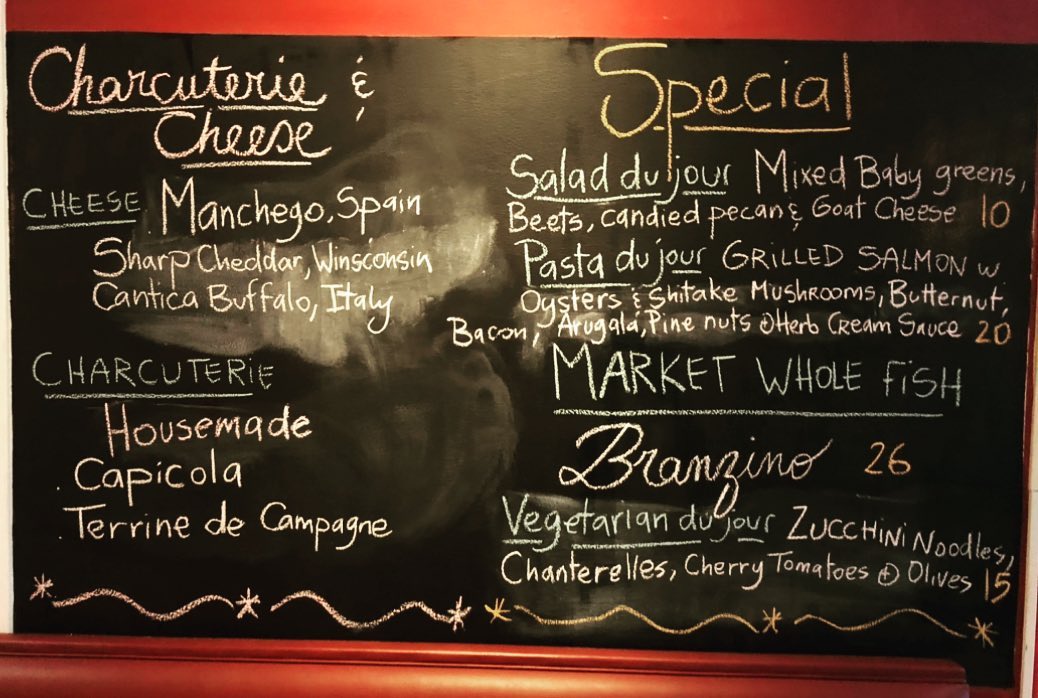 Charcuterie &
Cheese
CHEESE Manchego, Spain
Sharp Cheddar, Winsconsin
Cantica Buffalo, Italy
CHARCUTERIE
Housemade
. Capicola
. Terrine de Campagne
Special
Salad du jour Mixed Baby greens,
Beets, candied pecan & Goat Cheese 10
Pasta du jour GRILLED SALMON w
Oysters & Shitake Mushrooms, Butternut,
Bacon, Arugala, Pine nuts + Herb Cream Sauce 20
MARKET WHOLE FiSH
Branzino 26
Vegetarian du jour ZUCCHiNi Noodles,
Chanterelles, Cherry Tomatoes + Olives 15